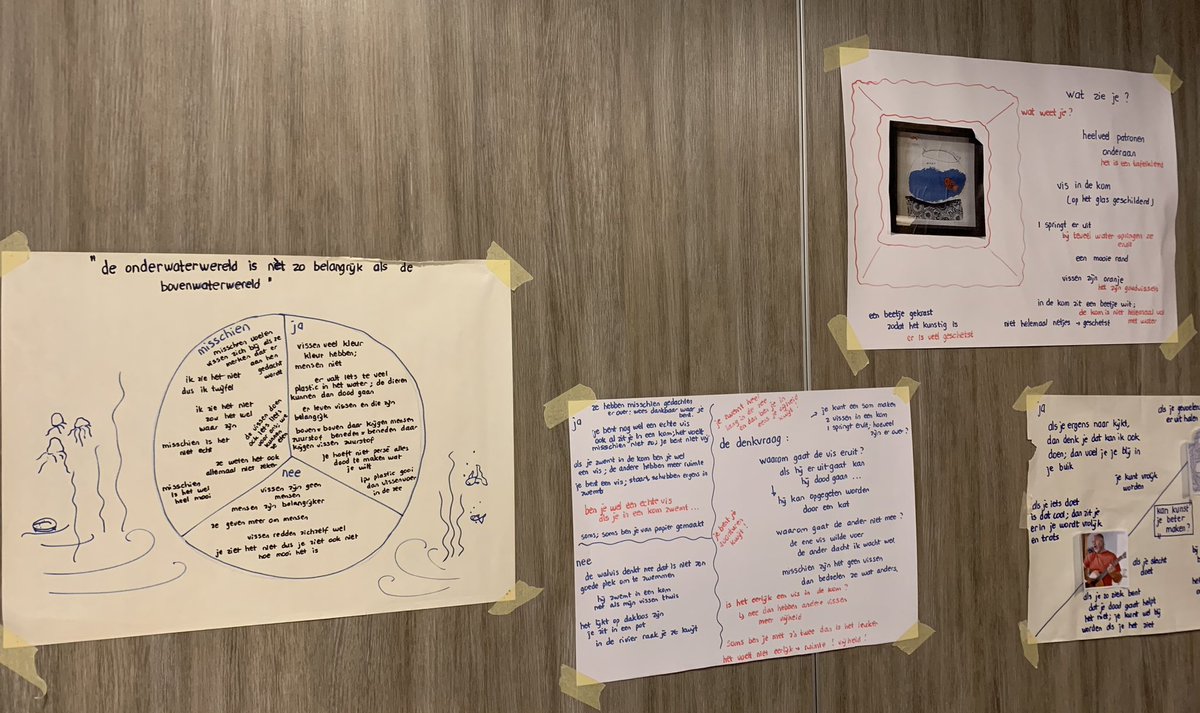 " de onderwaterwereld is nèt zo belangrijk als de
bovenwaterwereld "
misschien
misschien voelen
vissen zich blij als ze
merken dat er
aan hen
gedacht
wordt
ik zie het niet
dus ik twijfel
ik zie het niet
sou het wel
waar zijn
misschien is het
niet echt
de vissen doen
ook iets
voor ons; we
ze een
ze weten het ook
allemaal niet zeker
misschien
is het wel
heel mooi
ja
vissen veel kleur
kleur hebben;
mensen niet
er valt iets te veel
plastic in het water; de dieren
kunnen dan dood gaan
er leven vissen en die zijn
belangrijk
boven = boven daar krijgen mensen
zuurstof beneden = beneden daar
krijgen vissen zuurstof
je hoeft niet persé alles
dood te maken wat
je wilt
ipv plastic gooi
dan vissenvoer
in de zee
nee
vissen zijn geen
mensen
mensen zijn belangrijker
ze geven meer om mensen
vissen redden zichzelf wel
je ziet het niet dus je ziet ook niet
hoe mooi het is
ze hebben misschien gedachtes
erover: wees dankbaar waar je
bent.
ja
je bent nog wel een echte vis
ook al zit je in een kom; het voelt
misschien niet zo; je bent niet vrij
als je zwemt in de kom ben je wel
een vis; de andere hebben meer ruimte
je bent een vis; staart, schubben ergens in
zwemt
ben je wel een echte vis
als je in een kom zwemt...
soms; soms ben je van papier gemaakt
nee
de walvis denkt nee dat is niet zon
goede plek om te zwemmen
hij zwemt in een kom
net als mijn vissen thuis
het lijkt op dakloos zijn
je zit in een pot
in de rivier raak je ze kwijt
je zwemt heel
lang in de zee
en dan ben je in
eens je vrijheid
kwijt
je bent je
avonturen
kwijt
je kunt een som maken
2 vissen in een kom
1 springt eruit; hoeveel
zijn er over?
de denkvraag:
waarom gaat de vis eruit?
als hij er uit gaat kan
hij dood gaan...
hij kan opgegeten worden
door een kat
waarom gaat de ander niet mee?
de ene vis wilde voer
de ander dacht ik wacht wel
misschien zijn het geen vissen
dan bedoelen ze wat anders.
is het eerlijk een vis in de kom?
↳ nee dan hebben andere vissen
meer vrijheid
soms ben je met z'n twee dan is het leuker
het voelt niet eerlijk → ruimte! vrijheid!
wat zie je?
wat weet je?
heel veel patronen
onderaan
het is een tafelkleed
vis in de kom
(op het glas geschilderd)
1 springt er uit
bij teveel water springen ze
eruit
een mooie rand
vissen zijn oranje
het zijn goudvissen
in de kom zit een beetje wit;
de kom is niet helemaal vol
met water
niet helemaal netjes → geschetst
een beetje gekrast
zodat het kunstig is
er is veel geschetst
ja
als je ergens naar kijkt,
dan denk je dat kan ik ook
doen; dan voel je je blij in
je buik
als je gevoelen
er uit halen
je kunt vrolijk
worden
als je iets doet
is dat cool; dan zit je
er in je wordt vrolijk
en trots
kan kunst
je beter
maken?
als je slecht
doet
als je zo ziek bent
dat je dood gaat helpt
het niet; je kunt wel blij
worden als je het ziet